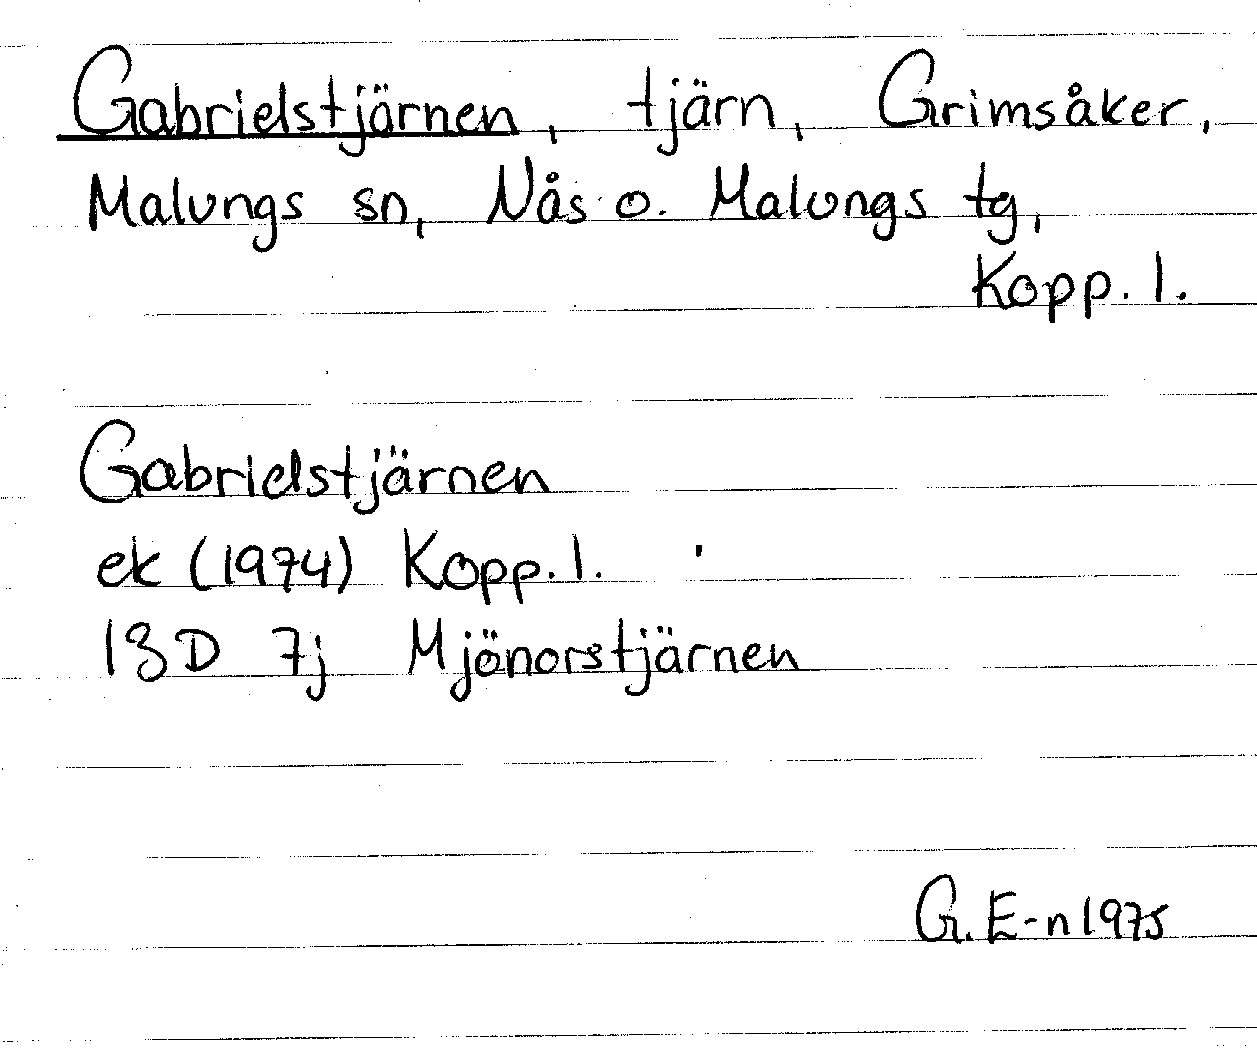 Gabrielstjärnen, tjärn, Grimsåker,
Malungs sn, Nås o. Malungs tg,
Kopp. l.
Gabrielstjärnen
ek (1974) Kopp. l.
13D 7j Mjönorstjärnen
G. E-n 1975